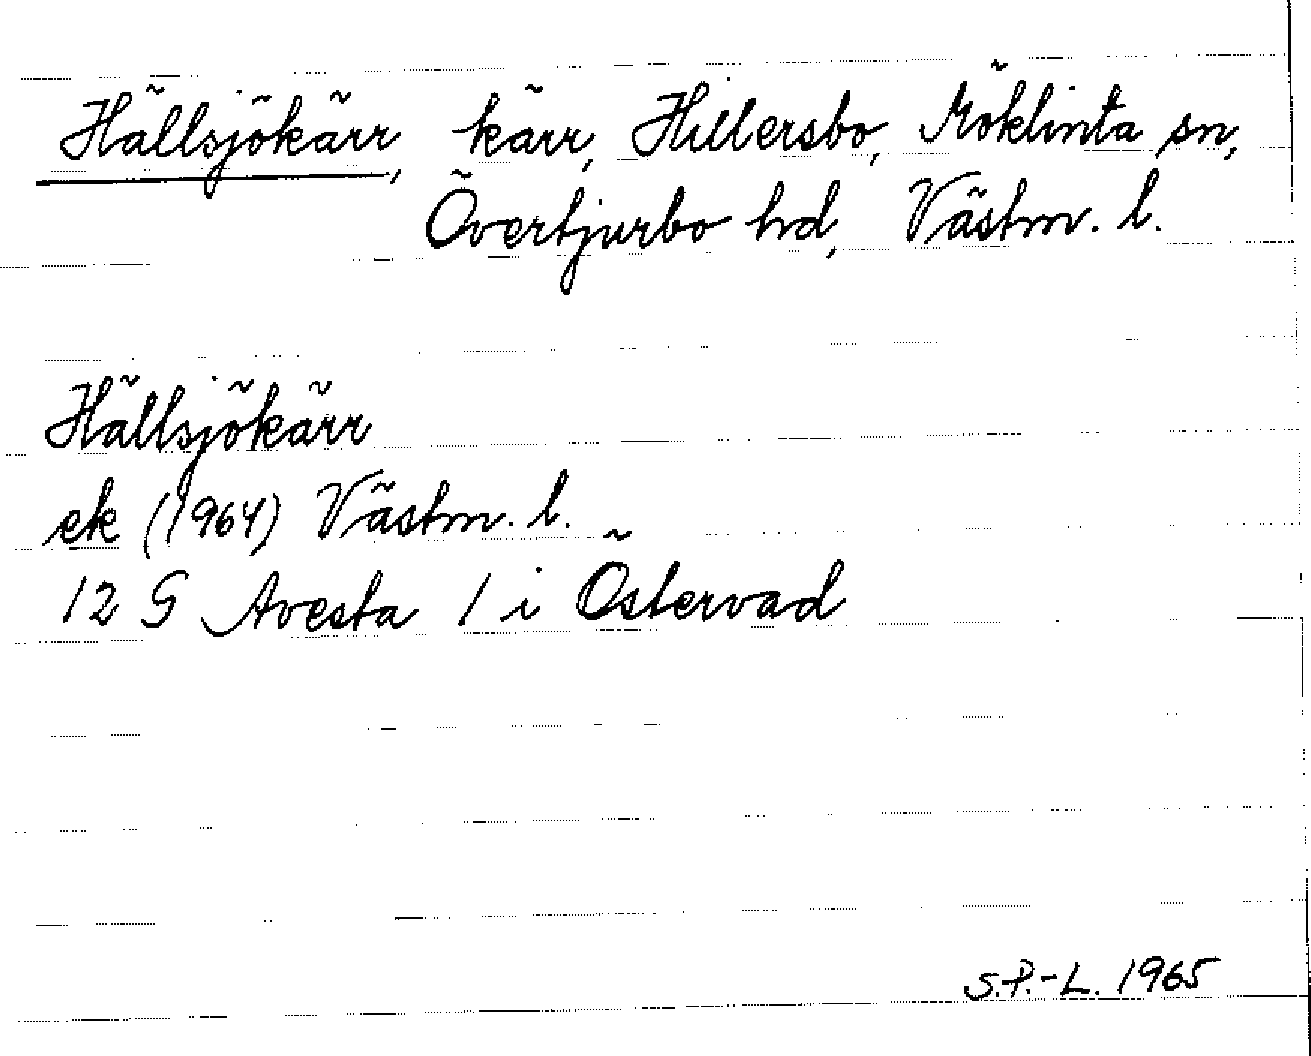 Hällsjökärr, kärr, Hillersbo, Möklinta sn,
Övertjurbo hd, Västm. l.
Hällsjökärr
ek (1964) Västm. l.
12 G Avesta 1 i Östervad
S.P.-L. 1965